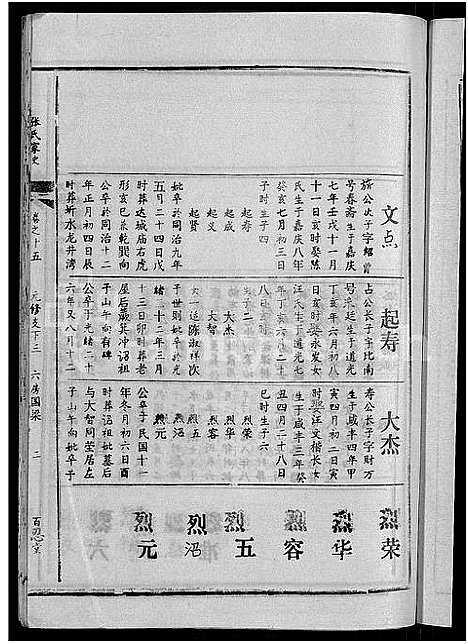 张氏家史
卷之十五
元修支下三
六房国梁
二
百忍堂
文点
旂公次子字绍曾
号春斋生于嘉庆
七年壬戌十一月
十一日亥时娶陈
氏生于嘉庆八年
癸亥七月初三日
子时生子四
起寿
起成
起义
起贤
妣卒於同治九年
五月二十四日戊
时葬达城庙右虎
形亥巳兼乾巽向
公卒於同治十二
年正月初四日辰
时葬圻水龙井湾
起寿
点公长子字比南
号采廷生于道光
丁亥年六月初八
日亥时娶永发女
汪氏生于道光七
年丁亥六月二十
八日寅时
生子二
大杰
大智
女一适涤淑祥次
子世则妣卒於光
绪二十二年三月
十三日卯时葬老
屋后簸箕冲诏祖
山午向有碑
公卒于光绪二十
六年又八月十二
大杰
寿公长子字时万
生于咸丰四年甲
寅四月初二日寅
时娶汪文楷长女
生于咸丰三年癸
丑四月二十八日
巳时生子六
烈荣
烈华
烈容
烈五
烈沼
烈元
公卒于民国十一
年冬月初六日酉
时葬诏祖妣墓后
与大智同茔居左
子山午向妣卒于
烈荣
烈华
烈容
烈五
烈沼
烈元